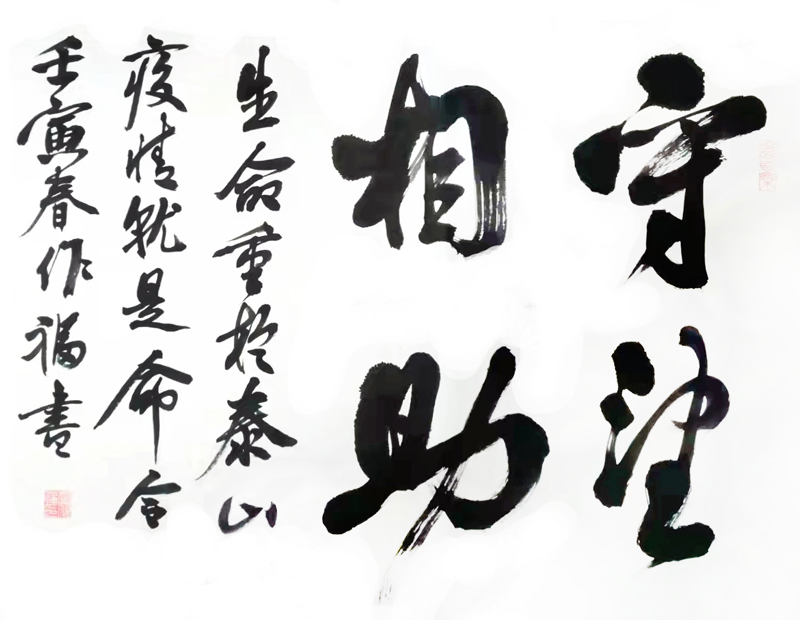 守望
相助
生命重於泰山
疫情就是命令
壬寅春作福書